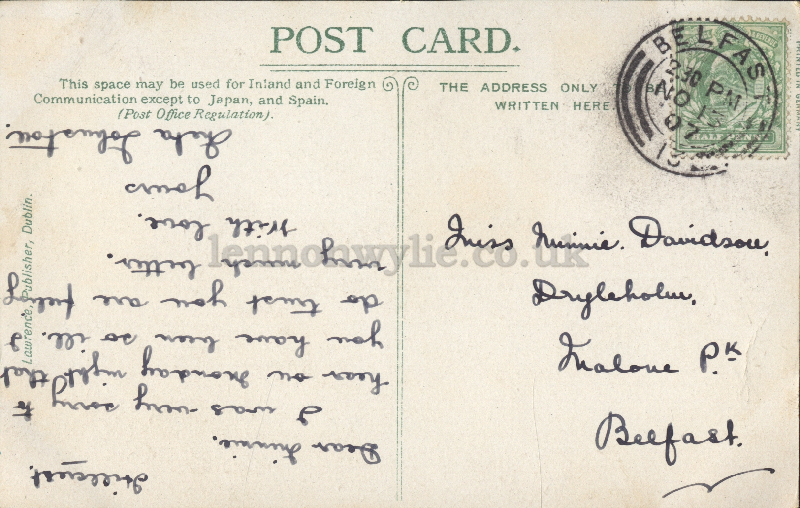 POST CARD.
This space may be used for Inland and Foreign
Communication except to Japan, and Spain.
(Post Office Regulation).
THE ADDRESS ONLY
WRITTEN HERE.
BELFAST
2 30 PM
NO 15
07
HALF PENNY
Miss Minnie Davidson,
Malone P.K
Belfast.
Hillcrest.
Dear Minnie.
I was very sorry to
hear on Monday night that
you have been so ill. I
do trust you are feeling
very much better.
With love.
Yours
Johnston.
Lawrence, Publisher, Dublin.
lennonwylie.co.uk